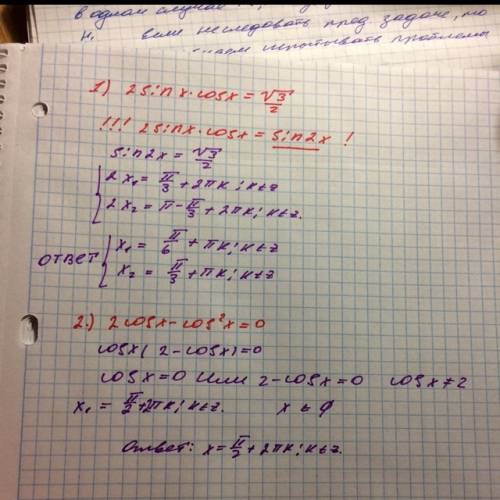 в одном случае
н, если исследовать пред. задачу, то
испытывать проблемы
1) 2sinx·cosx = √3/2
!!! 2sinx·cosx = sin2x !
sin2x = √3/2
2x₁ = π/3 + 2πk; k∈z
2x₂ = π - π/3 + 2πk; k∈z.
ответ { x₁ = π/6 + πk; k∈z
x₂ = π/3 + πk; k∈z
2.) 2cosx - cos²x = 0
cosx(2 - cosx) = 0
cosx = 0 или 2 - cosx = 0 cosx ≠ 2
x₁ = π/2 + 2πk; k∈z. x ∈ ∅
Ответ: x = π/2 + 2πk; k∈z.